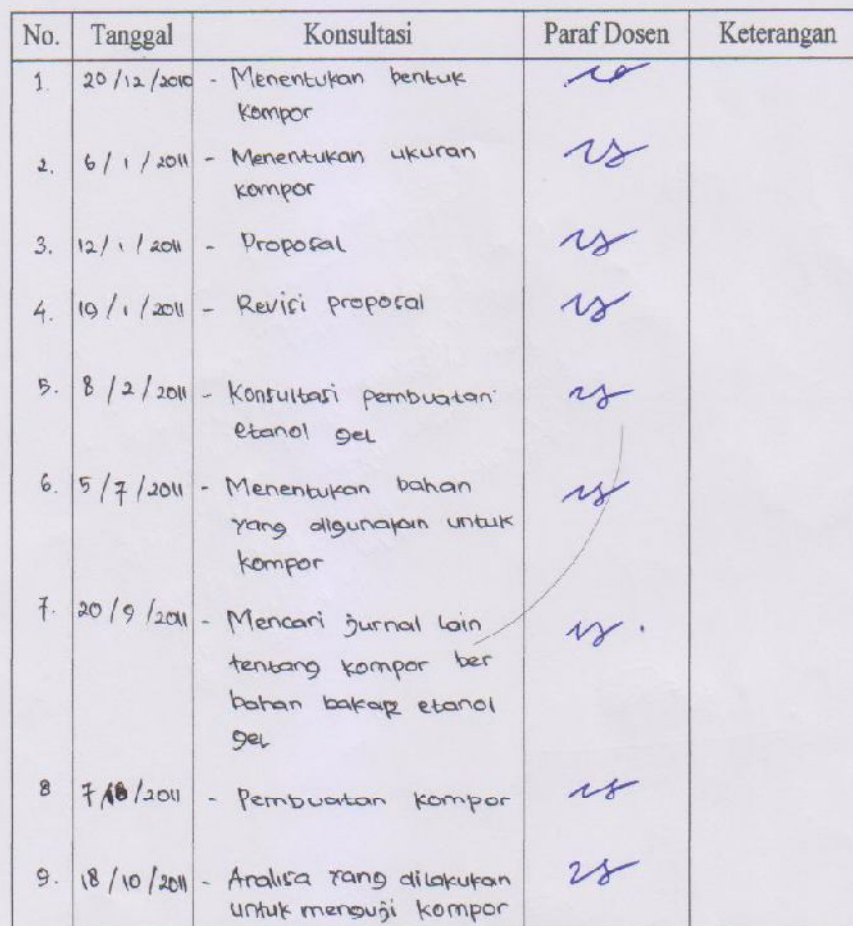 No. Tanggal Konsultasi Paraf Dosen Keterangan
1. 20/12/2010 - Menentukan bentuk
kompor
2. 6/1/2011 - Menentukan ukuran
kompor
3. 12/1/2011 - Proposal
4. 19/1/2011 - Revisi proposal
5. 8/2/2011 - Konsultasi pembuatan
etanol gel
6. 5/7/2011 - Menentukan bahan
yang digunakan untuk
kompor
7. 20/9/2011 - Mencari jurnal lain
tentang kompor ber
bahan bakar etanol
gel
8 - Pembuatan kompor
9. 18/10/2011 - Analisa yang dilakukan
untuk menguji kompor